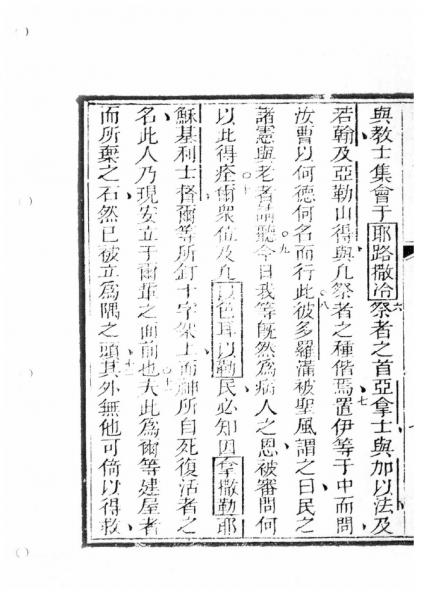 與敎士集會于耶路撒冶六祭者之首亞拿士與加以法及
若翰及亞勒山得與凡祭者之種偕焉七置伊等于中而問
汝曹以何德何名而行此八彼多羅滿被聖風謂之曰民之
諸憲與老者請聽九今日我等旣然爲病人之恩被審問何
以此得痊十爾衆位及凡以色耳以勒民必知因拿撒勒耶
穌基利士督爾等所釘十字架上而神所自死復活者之
名此人乃現安立于爾輩之面前也十一夫此爲爾等建屋者
而所棄之石然已被立爲隅之頭十二其外無他可倚以得救